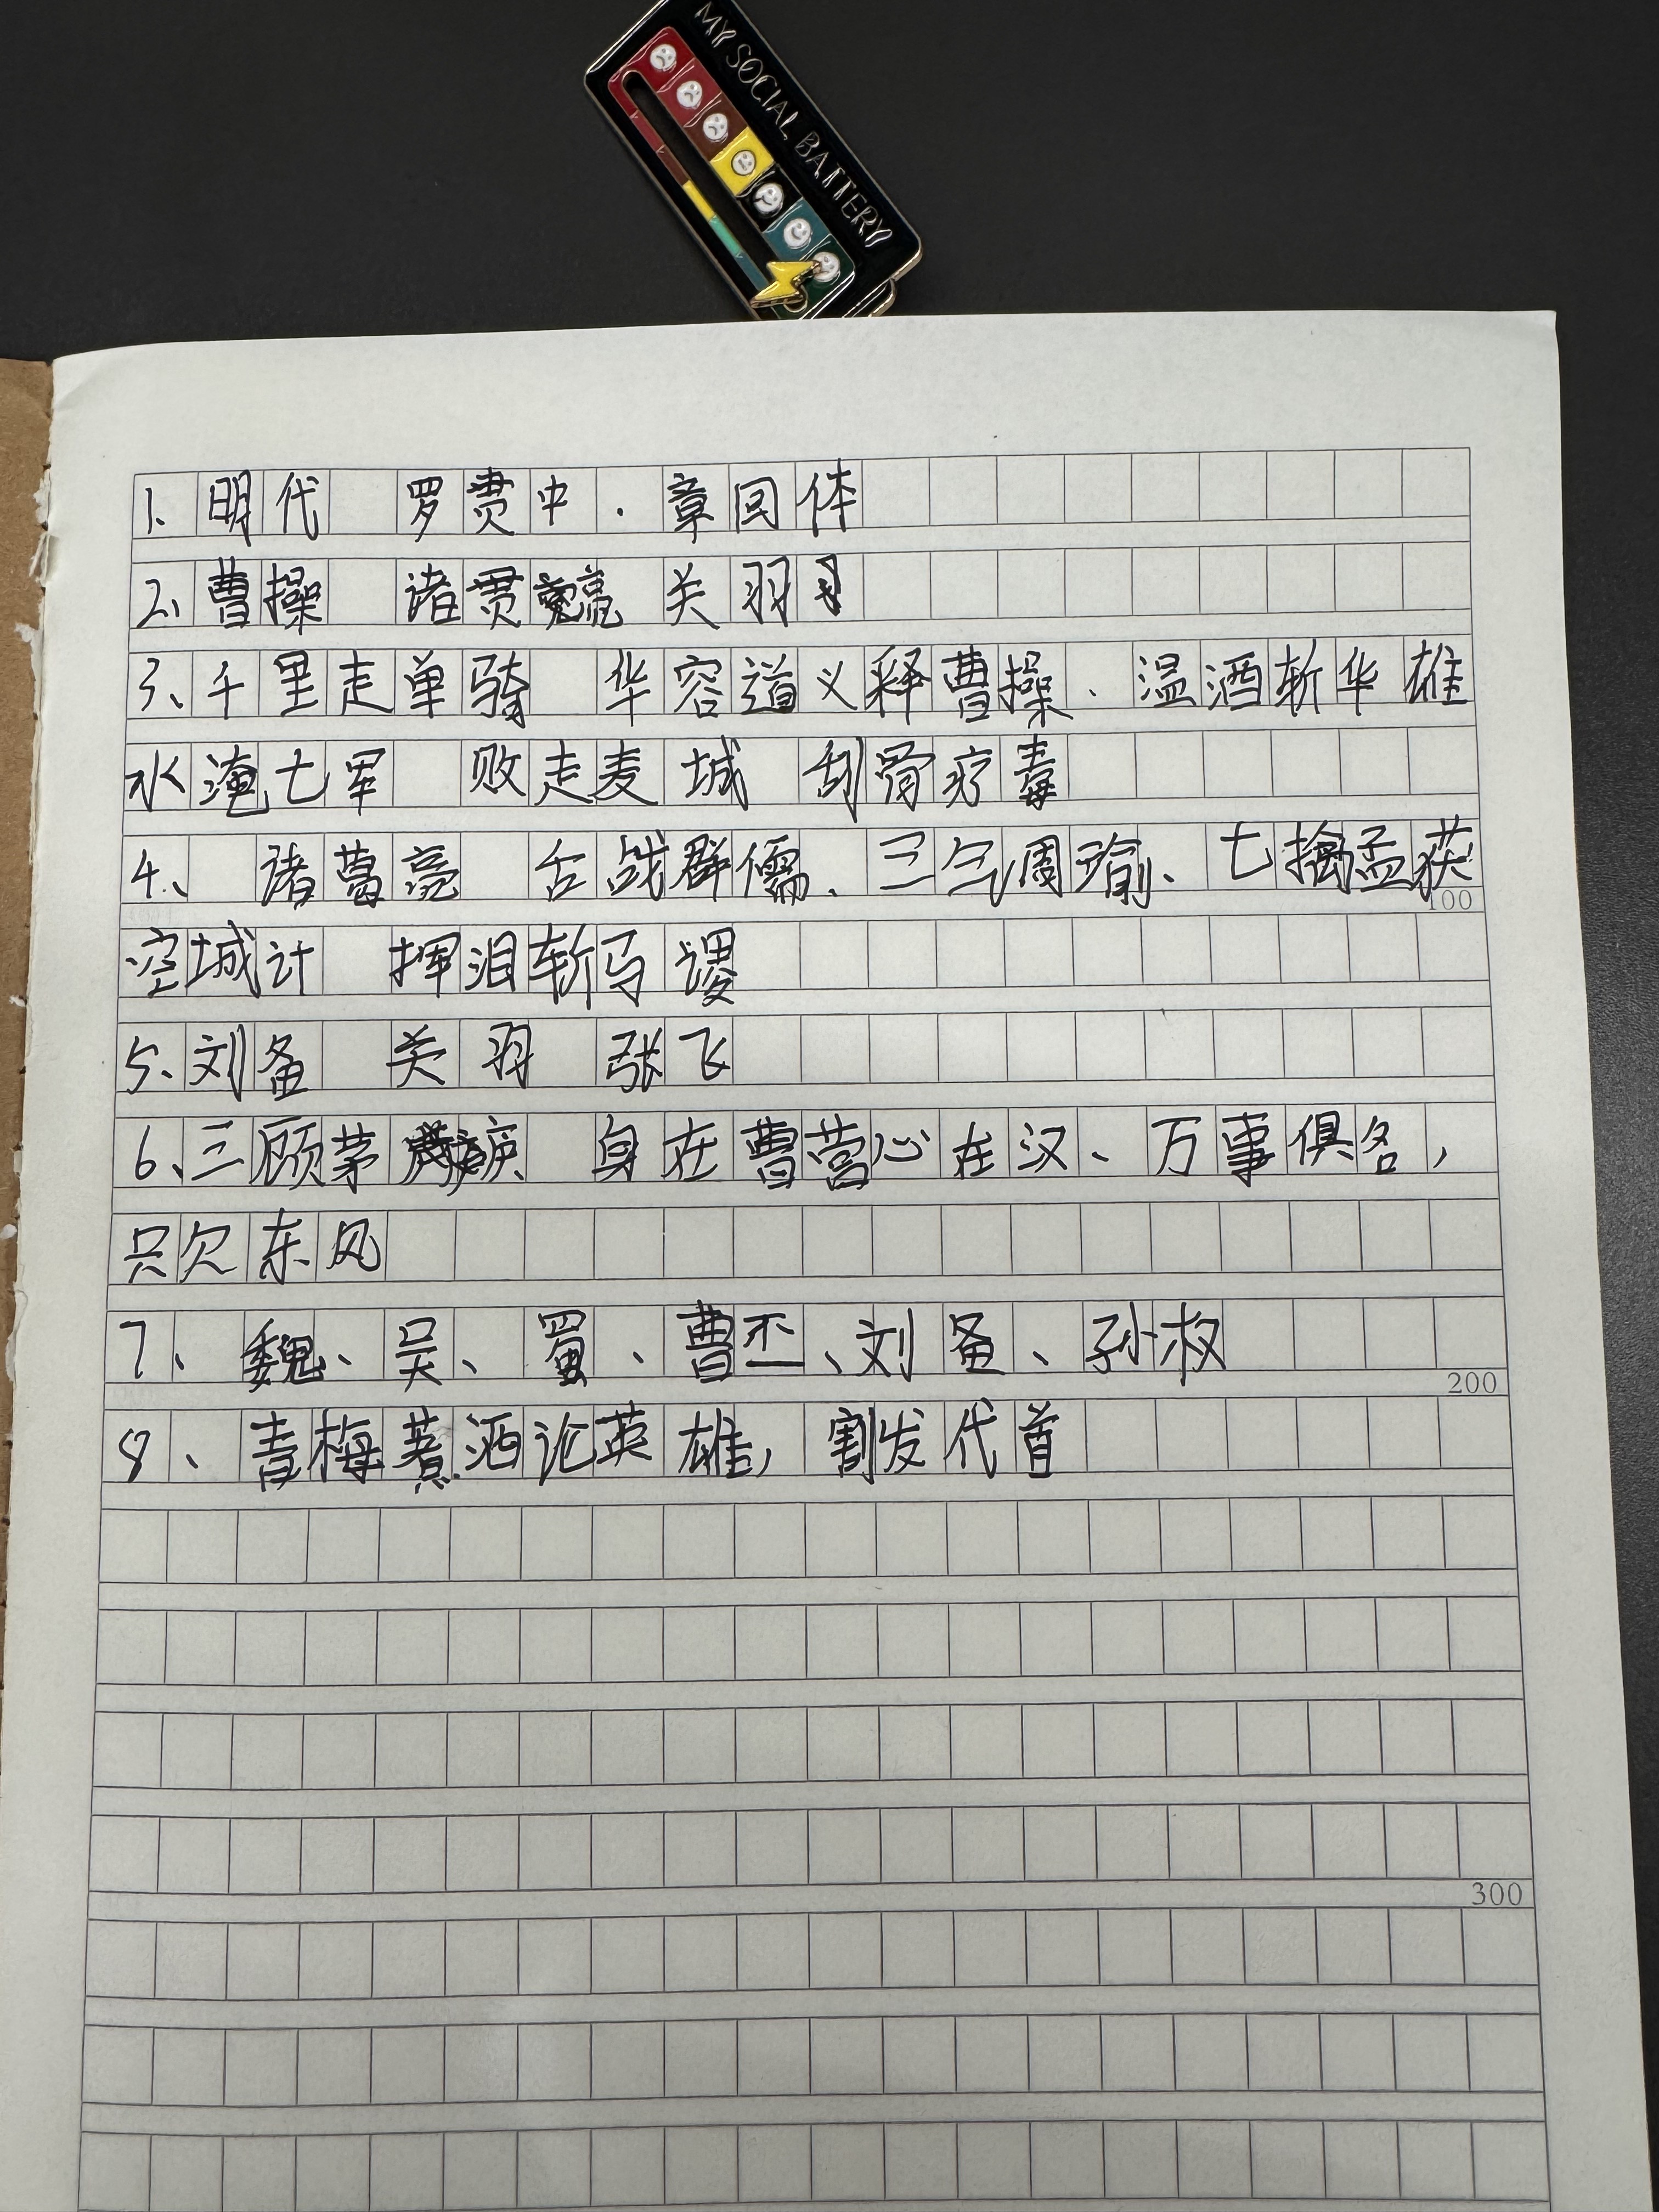 MY SOCIAL BATTERY
1、明代 罗贯中.章回体
2、曹操 诸贯亮 关羽
3、千里走单骑 华容道义释曹操、温酒斩华雄
水淹七军 败走麦城 刮骨疗毒
4、 诸葛亮 舌战群儒、三气周瑜、七擒孟获
100
空城计 挥泪斩马谡
5、刘备 关羽 张飞
6、三顾茅庐 身在曹营心在汉、万事俱备,
只欠东风
7、魏、吴、蜀、曹丕、刘备、孙权
200
8、青梅煮酒论英雄,割发代首
300